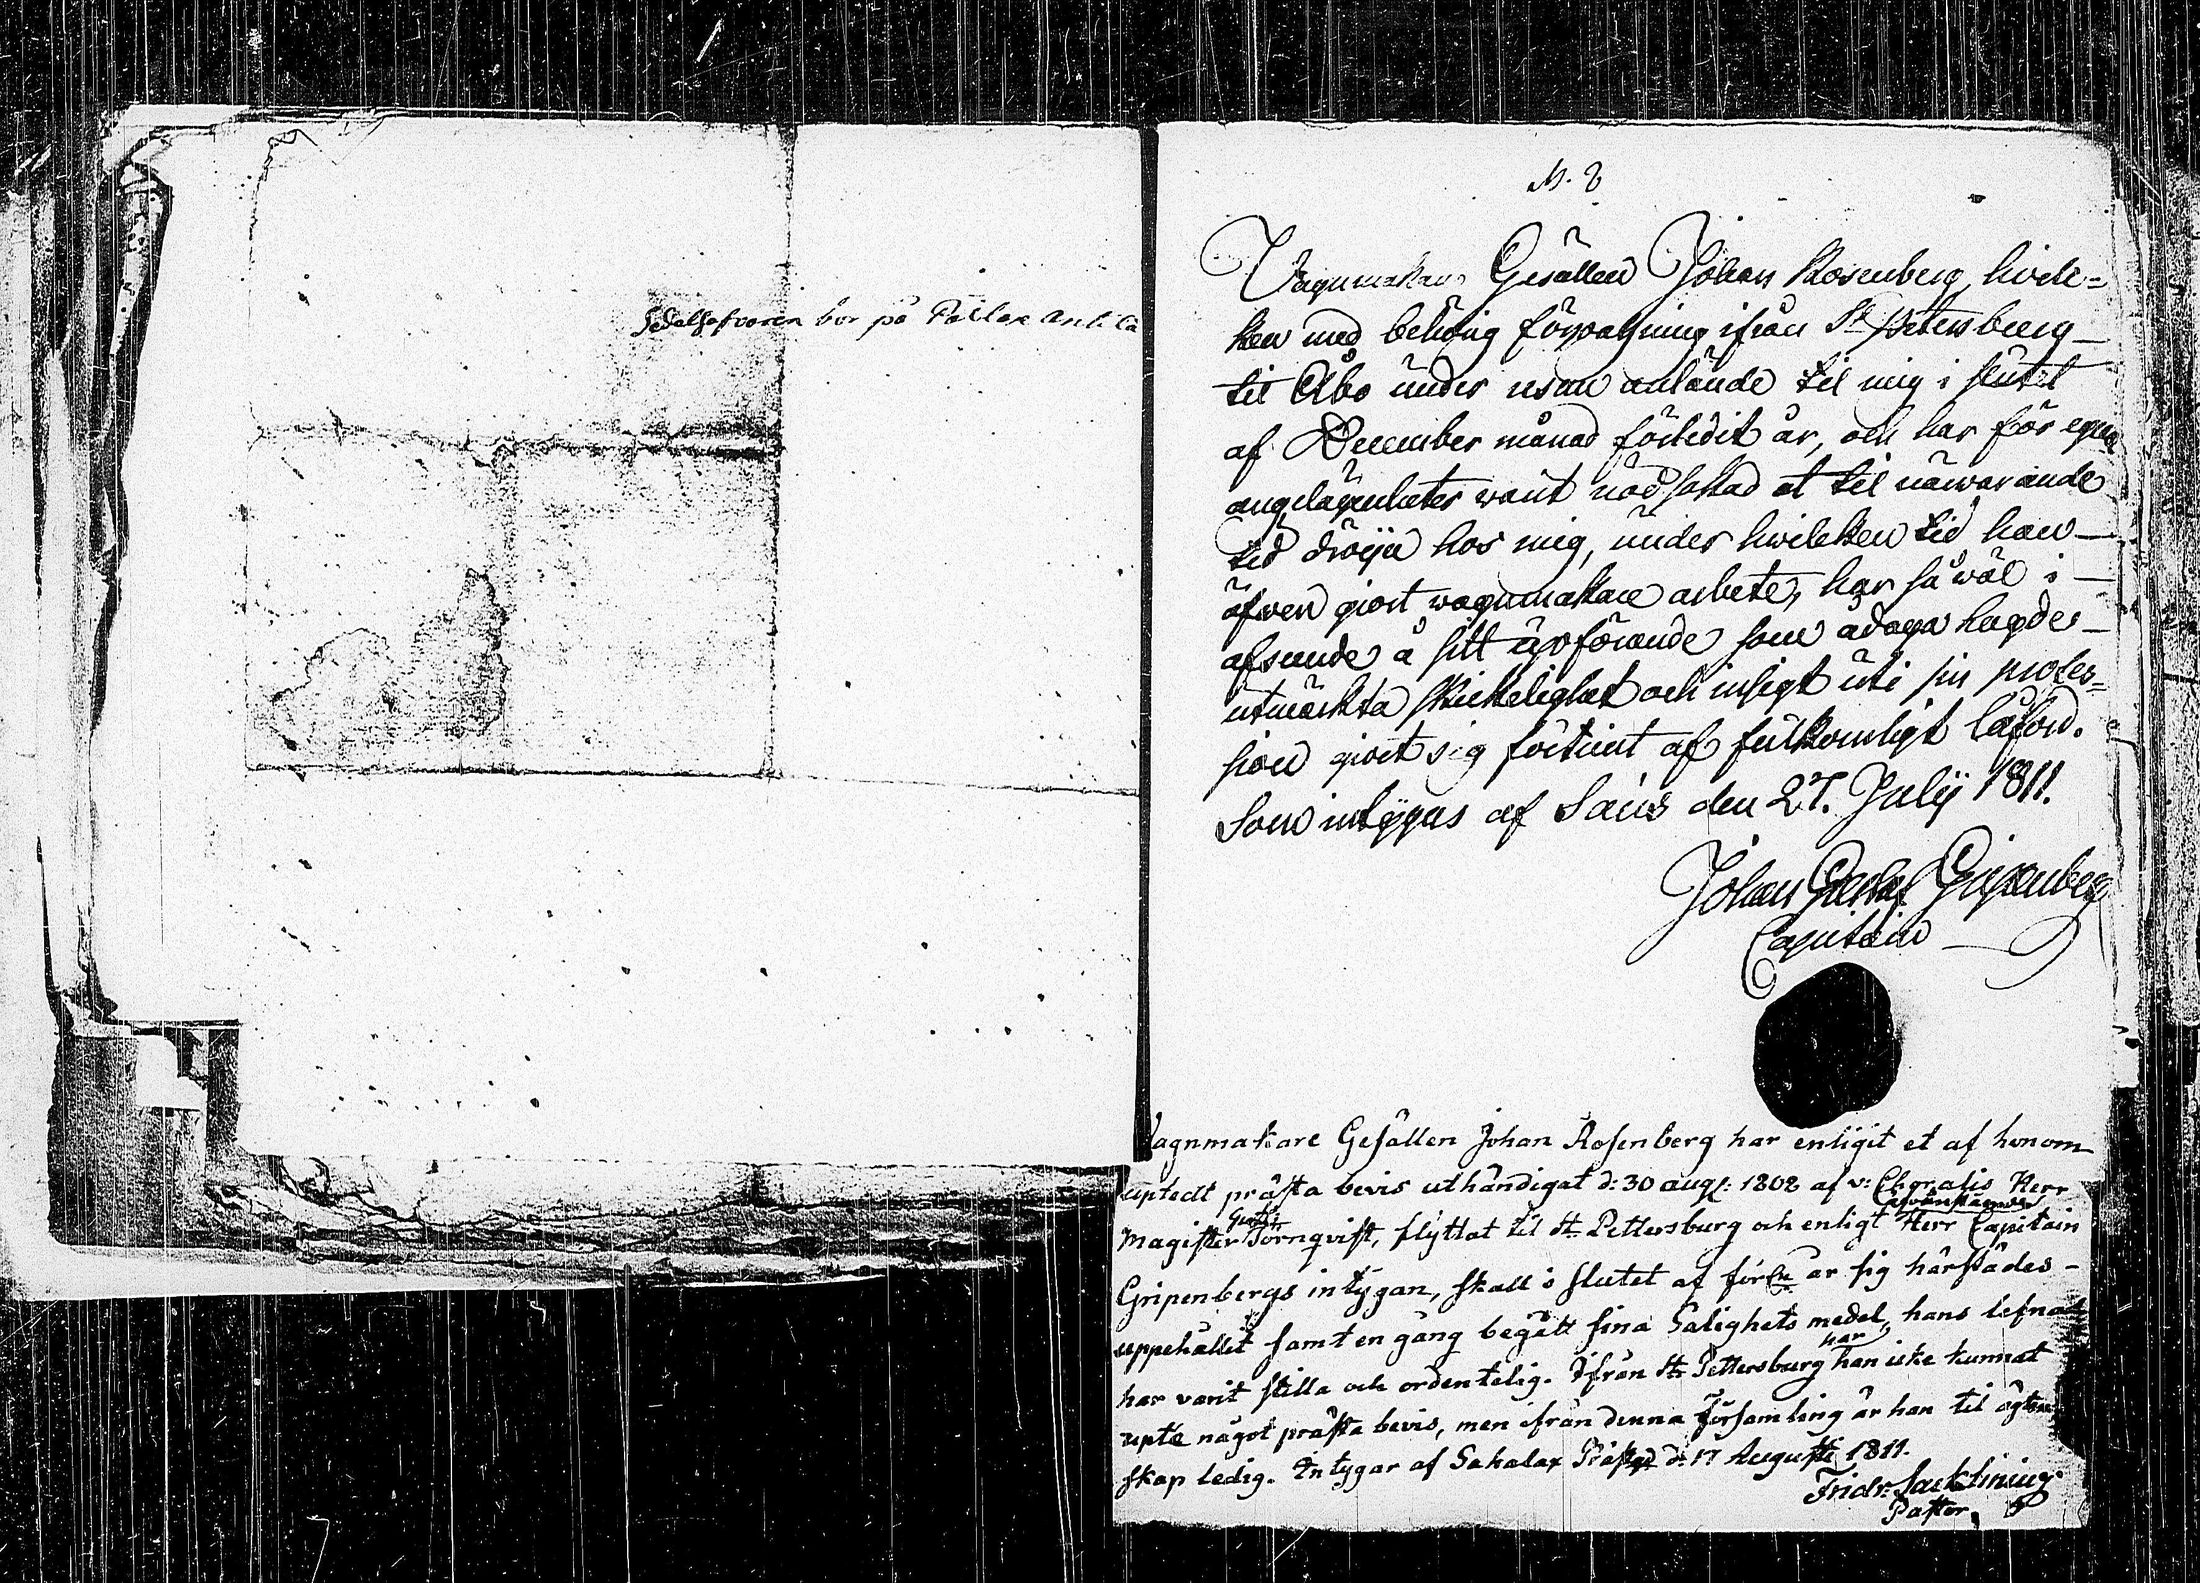 Sedelhafvaren bor på Pallax Antila
N. 8
Vagnmakare Gesällen Johan Rosenberg, hvil=
ken med behörig förpassning ifrån St Petersburg
til Åbo under resan anlände til mig i slutet
af December månad förledit år, och har för egna
angelägenheter varit nödsakad at til närwarande
tid dröija hos mig, under hvilcken tid han
äfven giort wagnmakare arbete, har så wäl i
afseende å sitt upförande som ådagalagde
utmärkta skickelighet och insigt uti sin profes=
sion giort sig förtient af fulkomligt låford.
Som intygas af Sáús den 27. Julij 1811.
Johan Gustaf Gripenberg
Capitain
Vagnmakare Gesällen Johan Rosenberg har enligit et af honom
uptedt prästa bevis uthändigat d: 30 aug: 1802 af v: Herr
Magister Törnqvist, flyttat til St. Pettersburg och enligt ofvanstående Herr Capitain
Gripenbergs intygan, skall i slutet af förl. år sig härstädes
uppehållit samt en gång begått sina Salighets medel, hans lefnad
har varit stilla och ordentelig. Ifrån St. Pettersburg har han icke kunnat
upte något prästa bevis, men ifrån denna församling är han til ägten
skap ledig. Intygar af Sahalax Prästgd d. 17 Augusti 1811.
Fridr: Sacklinius
Pastor.